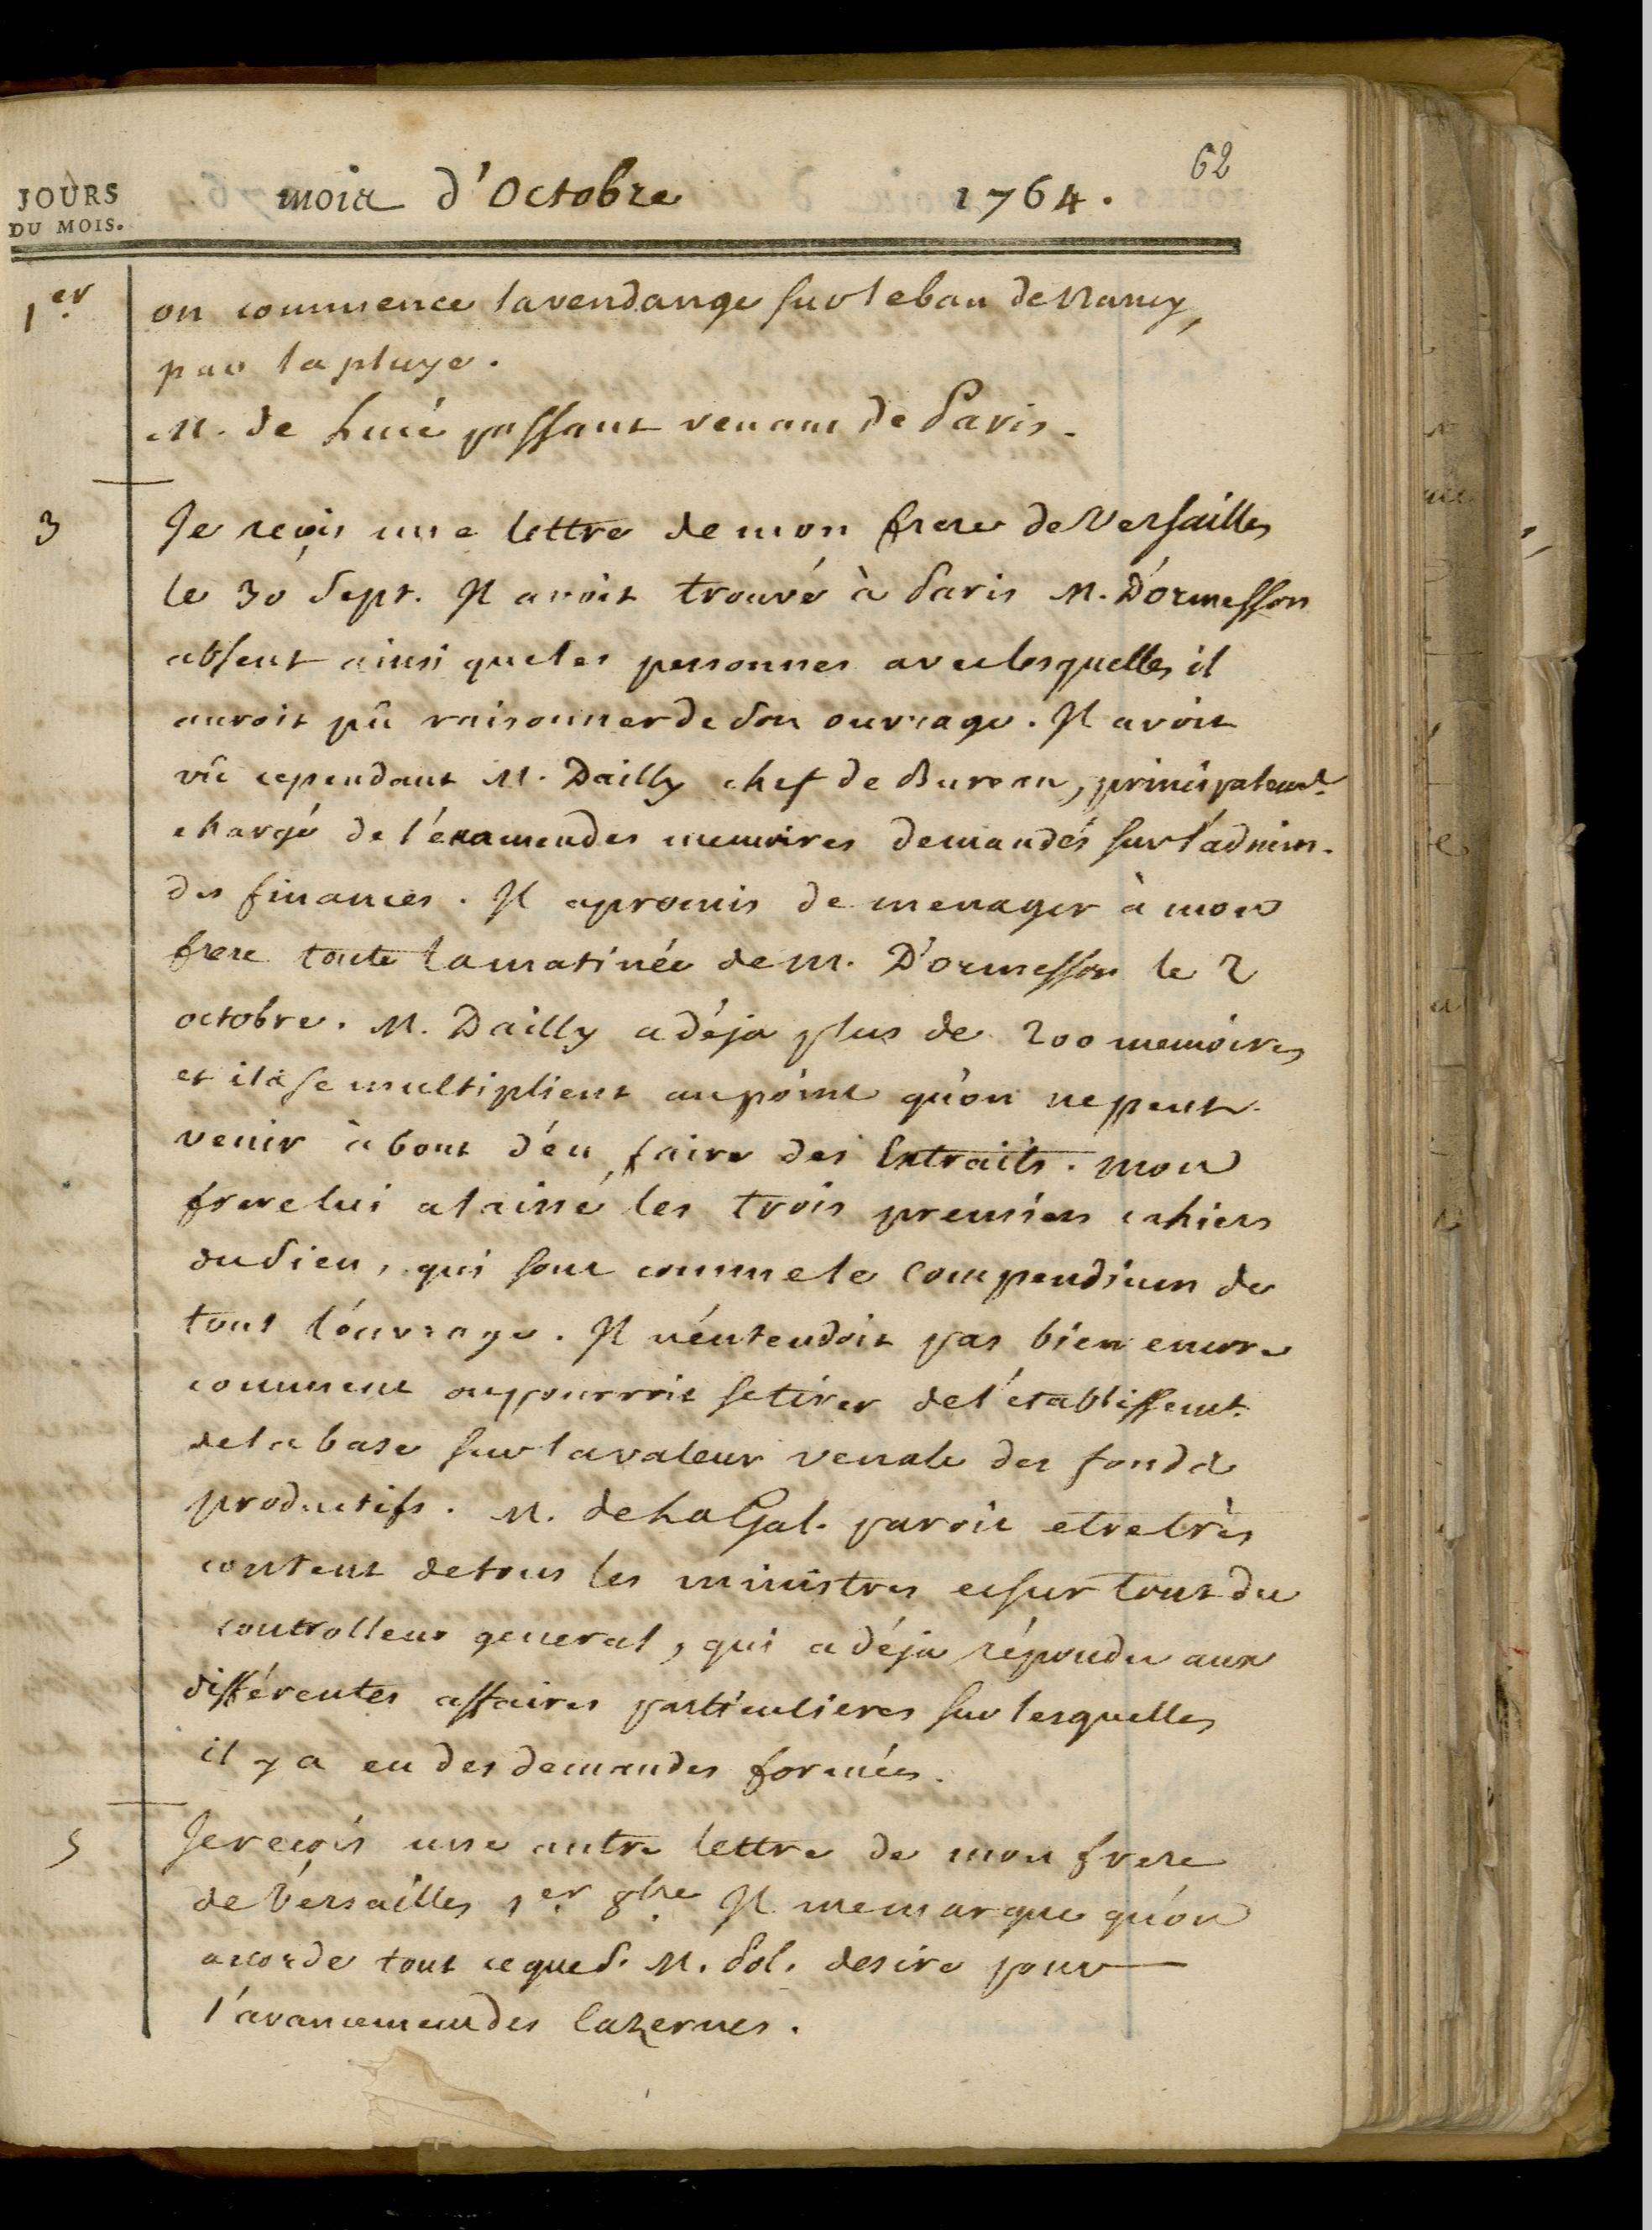 62
JOURS
DU MOIS.
mois d'Octobre 1764.
1er on commence la vendange sur le ban de Nancy,
par la pluye.
M. de Lucé passant venant de Paris.
3 Je reçois une lettre de mon frere de Versailles
le 30 Sept. Il avoit trouvé à Paris M. D'ormesson
absent ainsi que les personnes avec lesquelles il
auroit pû raisonner de son ouvrage. Il avoit
vû cependant M. Dailly chef de Bureau, principalemt.
chargé de l'examen des memoires demandés sur l'admin.
des finances. Il a promis de menager à mon
frere toute la matinée de M. D'ormesson le 2
octobre. M. Dailly a déja plus de 200 memoires
et ils se multiplient au point qu'on ne peut
venir à bout d'en faire des Extraits. mon
frere lui a laissé les trois premiers cahiers
du Sien, qui sont comme le Compendium de
tout l'ouvrage. Il n'entendoit pas bien encore
comment on pourroit se tirer de l'etablissemt.
de la base sur la valeur venale des fonds
productifs. M. de La Gal. paroit etre très
content de tous les ministres et sur tout du
controlleur general, qui a déja répondu aux
différentes affaires particulieres sur lesquelles
il y a eu des demandes formées.
5 Je reçois une autre lettre de mon frere
de Versailles 1er 8bre. Il me marque qu'on
accorde tout ce que S. M. Pol. desire pour
l'avancement des Cazernes.